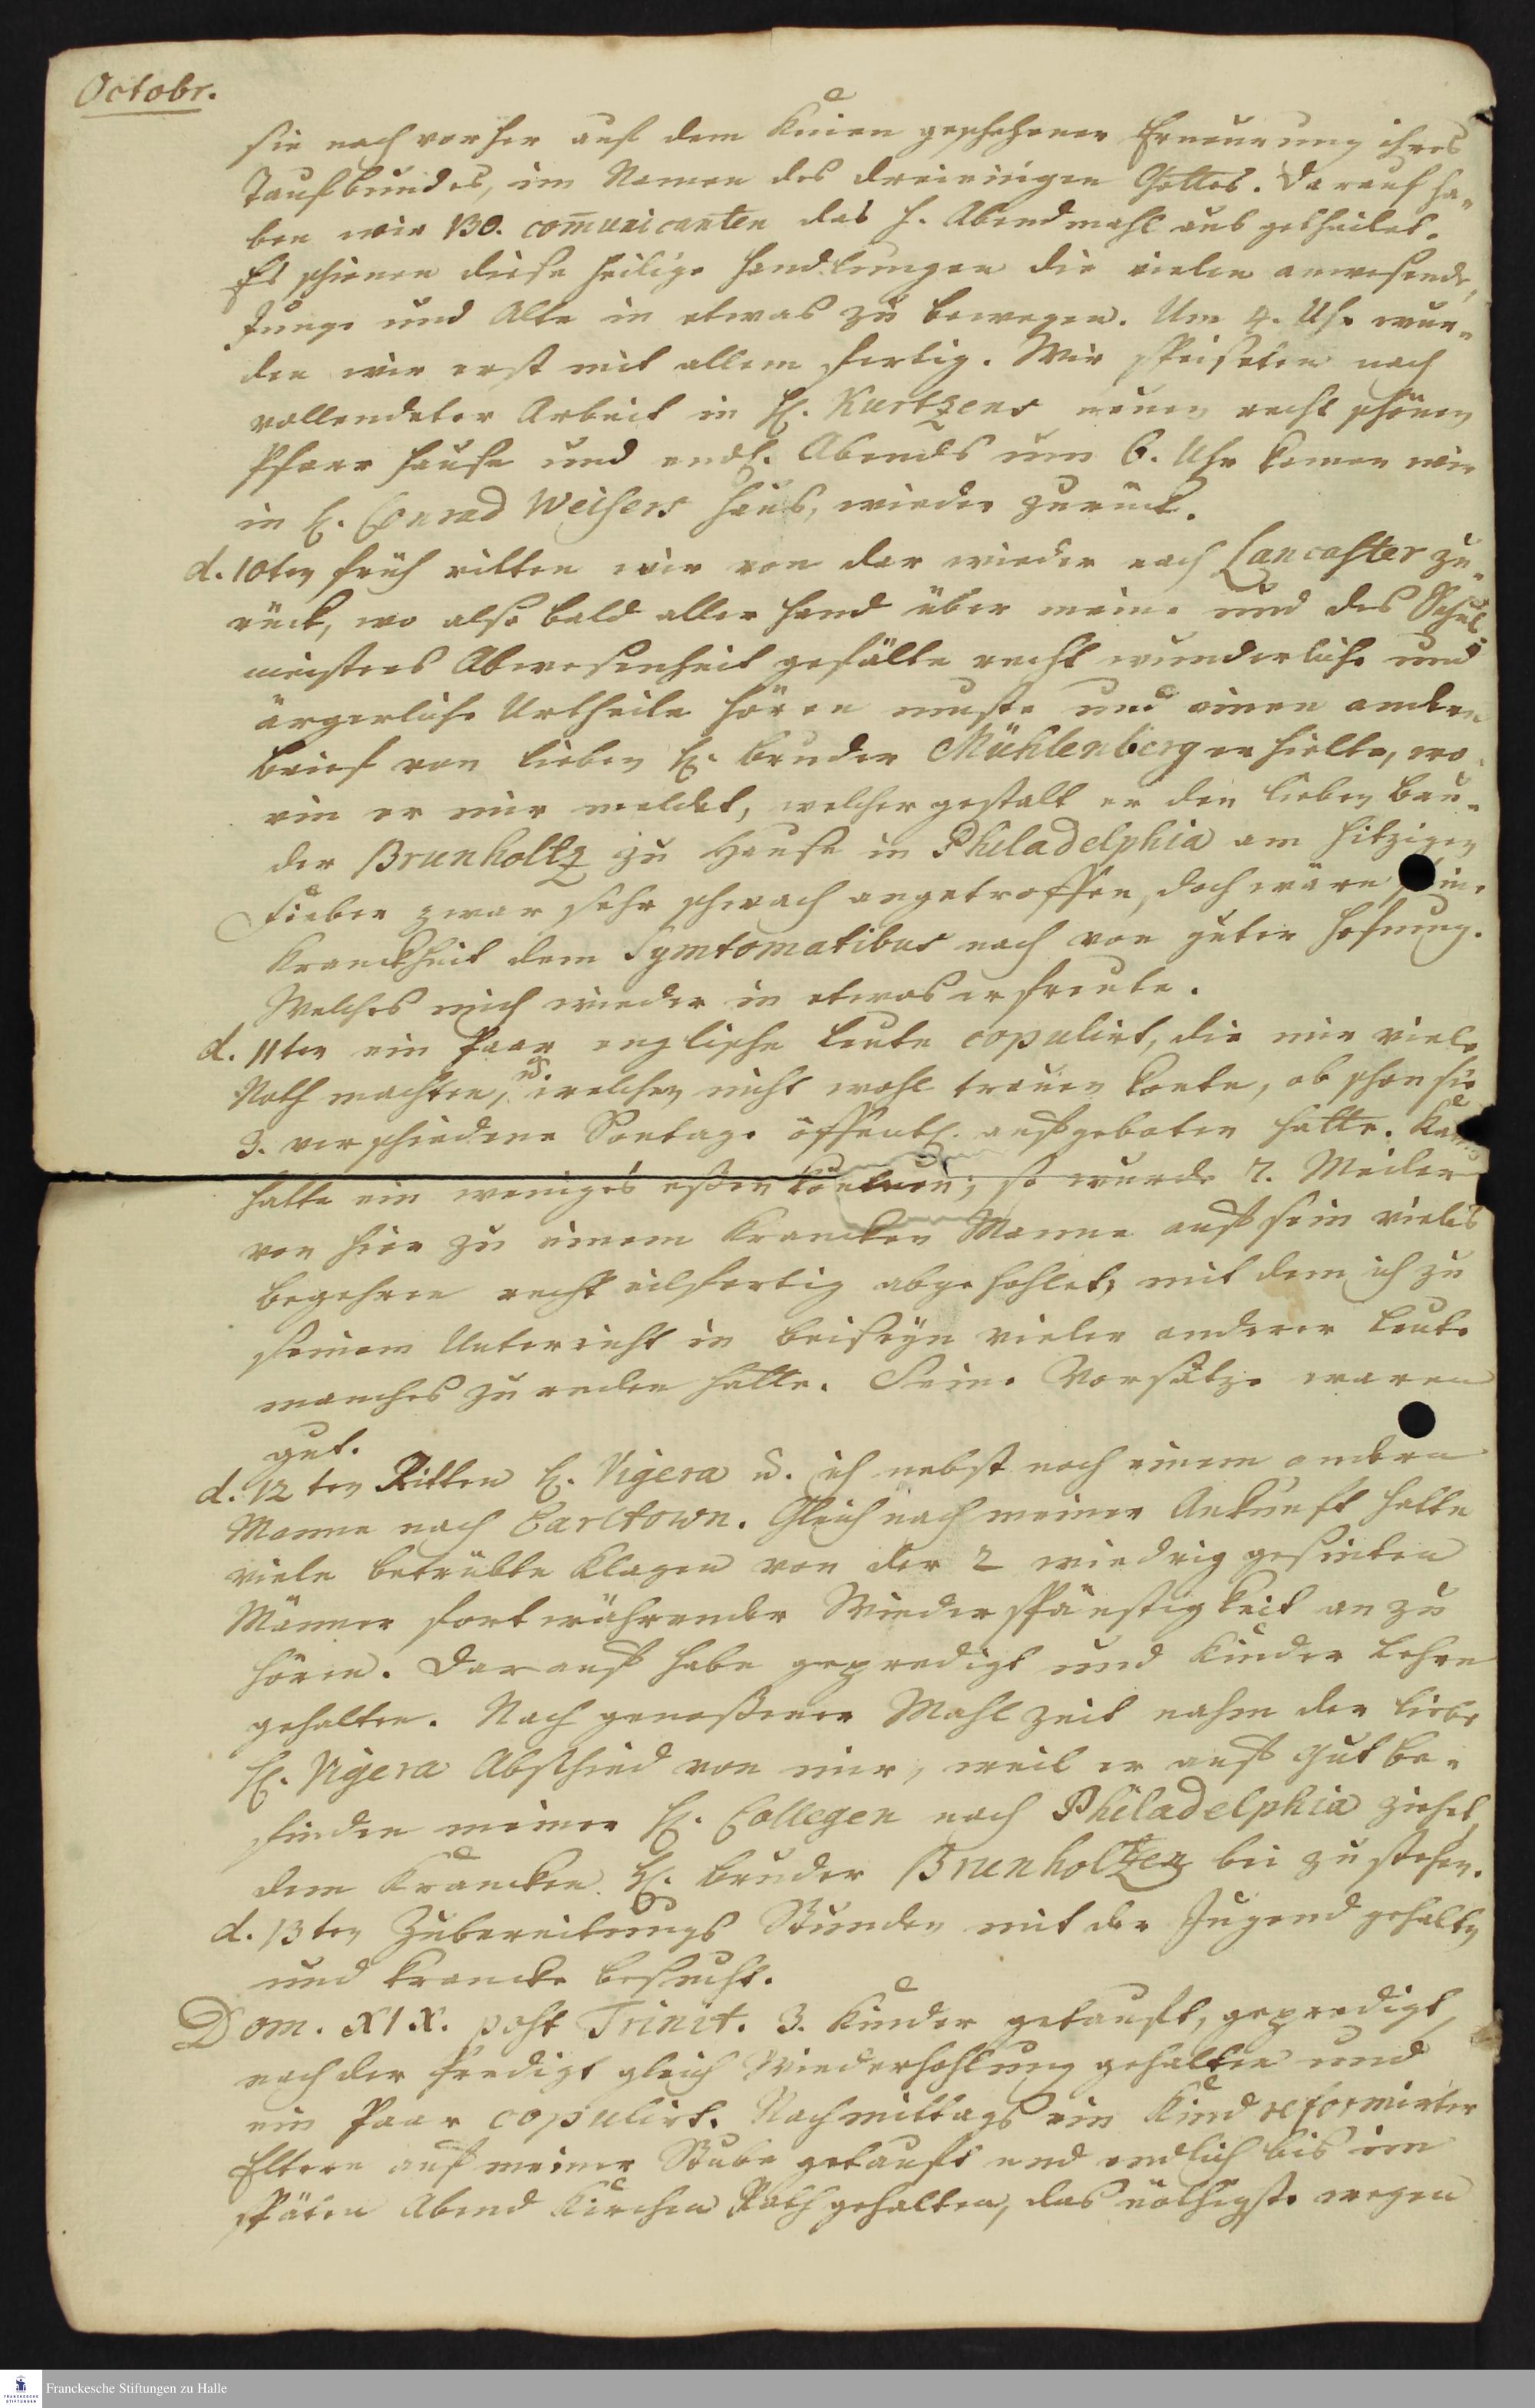 Octobr.
sie nach vorher auf dem Knien geschehener Erneurung ihres
Taufbundes, im Namen des dreieinigen Gottes. Darauf ha-
ben wir 130. com̄unicanten das h. Abendmahl aus getheilet.
Es schienen diese heilige Handlungen die vielen anwesende,
Junge und Alte in etwas zu bewegen. Um 4. Uhr wur-
den wir erst mit allem fertig. Wir speiseten nach
vollendeter Arbeit in H. Kurtzens neuen recht schönen
Pfarr Hause und endl. Abends um 6. Uhr kamen wir
in H. Conrad Weisers Haus, wieder zurück.
d. 10ten früh ritten wir von dar wieder nach Lancaster zu-
rück, wo also bald aller hand über meine und des Schul
meisters Abwesenheit gefälte recht wunderliche und
ärgerliche Urtheile hören muste und einen andern
brief von lieben H. bruder Mühlenberg erhielte, wo-
rin er mir meldet, welcher gestalt er den lieben bru-
der Brunholtz zu Hause in Philadelphia am hitzigen
Fieber zwar sehr schwach angetroffen, doch wäre seine
Kranckheit dem Symtomatibus nach von guter Hofnung.
Welches mich wieder in etwas erfreute.
d. 11ten ein Paar englische Leute copulirt, die mir viele
Noth machten, u. welchen nicht wohl trauen konte, ob schon sie
3. verschiedene Sontage öffentl. aufgeboten hatte. Kaum
hatte ein weniges eßen können; so wurde 7. Meilen
von hier zu einem Krancken Manne auf sein vieles
begehren recht eilfertig abgehohlet, mit dem ich zu
seinem Unterricht in beiseyn vieler anderer Leute
manches zu reden hatte. Seine Vorsätze waren
gut.
d. 12ten Ritten H. Vigera u. ich nebst noch einem andern
Manne nach Earltown. Gleich nach meiner Ankunft hatte
viele betrübte Klagen von der 2 wiedrig gesinten
Männer fortwährender Wiederspänstigkeit an zu
hören. Darauf habe gepredigt und Kinder Lehre
gehalten. Nach genoßener Mahlzeit nahm der liebe
H. Vigera Abschied von mir, weil er auf Gut be-
finden meiner H. Collegen nach Philadelphia ziehet,
dem Krancken H. bruder Brunholtzen bei zu stehen.
d. 13ten Zubereitungs Stunden mit der Jugend gehalten
und krancke besucht.
Dom. XIX. post Trinit. 3. Kinder getauft, gepredigt,
nach der Predigt gleich Wiederhohlung gehalten und
ein Paar copulirt. Nachmittags ein Kind reformirter
Eltern auf meiner Stube getauft und endlich bis im
späten Abend Kirchen Rath gehalten, das nöthigste wegen
Franckesche Stiftungen zu Halle